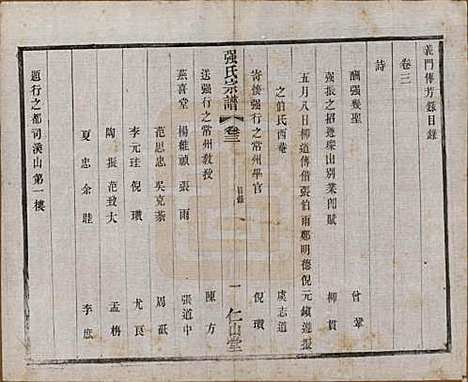 義門傳芳錄目錄
卷三
詩
酬强幾聖 曾鞏
强振之招遊梁山別業閒賦 柳貫
五月八日柳道傳偕張伯雨鄭明德倪元鎮遊强
之伯氏西菴 虞志道
寄懷强行之常州學官 倪瓚
送强行之常州教授 陳方
燕喜堂 楊維禎 張雨 張道中
范思忠 吳克恭 周砥
李元珪 倪瓚 尤良
陶振 范致大 孟栴
夏忠 余䟫 李庶
題行之都司溪山第一樓
强氏宗譜 卷三 目錄 一 仁山堂